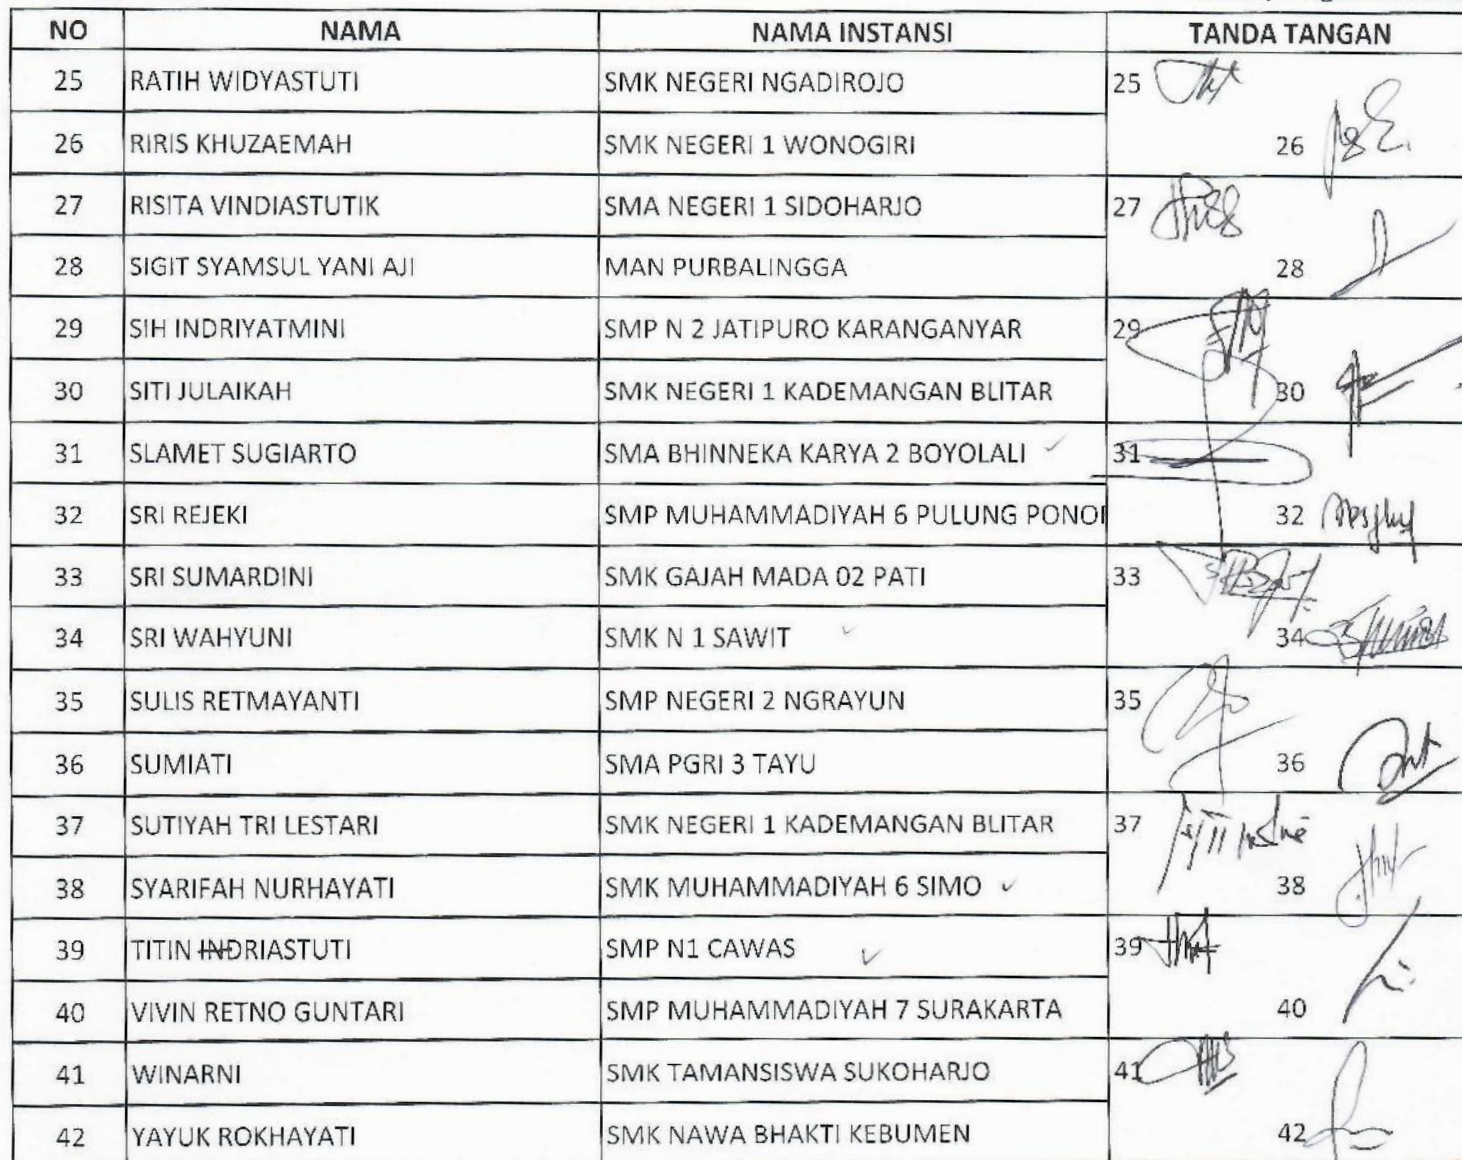 NO NAMA NAMA INSTANSI TANDA TANGAN
25 RATIH WIDYASTUTI SMK NEGERI NGADIROJO 25
26 RIRIS KHUZAEMAH SMK NEGERI 1 WONOGIRI 26
27 RISITA VINDIASTUTIK SMA NEGERI 1 SIDOHARJO 27
28 SIGIT SYAMSUL YANI AJI MAN PURBALINGGA 28
29 SIH INDRIYATMINI SMP N 2 JATIPURO KARANGANYAR 29
30 SITI JULAIKAH SMK NEGERI 1 KADEMANGAN BLITAR 30
31 SLAMET SUGIARTO SMA BHINNEKA KARYA 2 BOYOLALI 31
32 SRI REJEKI SMP MUHAMMADIYAH 6 PULUNG PONO 32
33 SRI SUMARDINI SMK GAJAH MADA 02 PATI 33
34 SRI WAHYUNI SMK N 1 SAWIT 34
35 SULIS RETMAYANTI SMP NEGERI 2 NGRAYUN 35
36 SUMIATI SMA PGRI 3 TAYU 36
37 SUTIYAH TRI LESTARI SMK NEGERI 1 KADEMANGAN BLITAR 37
38 SYARIFAH NURHAYATI SMK MUHAMMADIYAH 6 SIMO 38
39 TITIN INDRIASTUTI SMP N1 CAWAS 39
40 VIVIN RETNO GUNTARI SMP MUHAMMADIYAH 7 SURAKARTA 40
41 WINARNI SMK TAMANSISWA SUKOHARJO 41
42 YAYUK ROKHAYATI SMK NAWA BHAKTI KEBUMEN 42